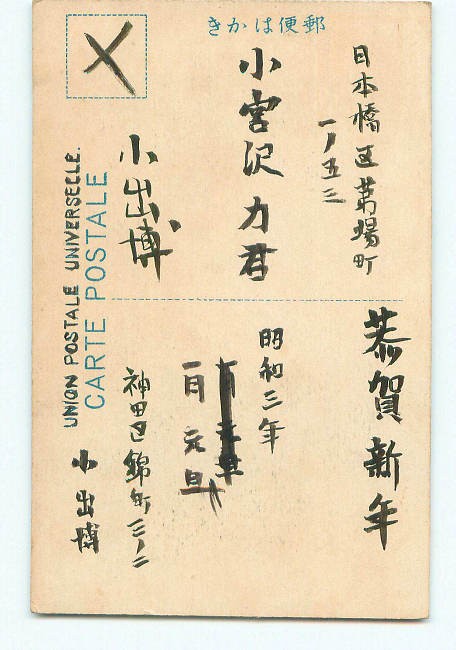 きかはꞏ便郵
日本橋区茅場町
一ノ五三
小宮沢力君
小出博
恭賀新年
昭和三年
一月元旦
神田区錦町三ノ二
小出博
UNION POSTALE UNIVERSELLE.
CARTE POSTALE